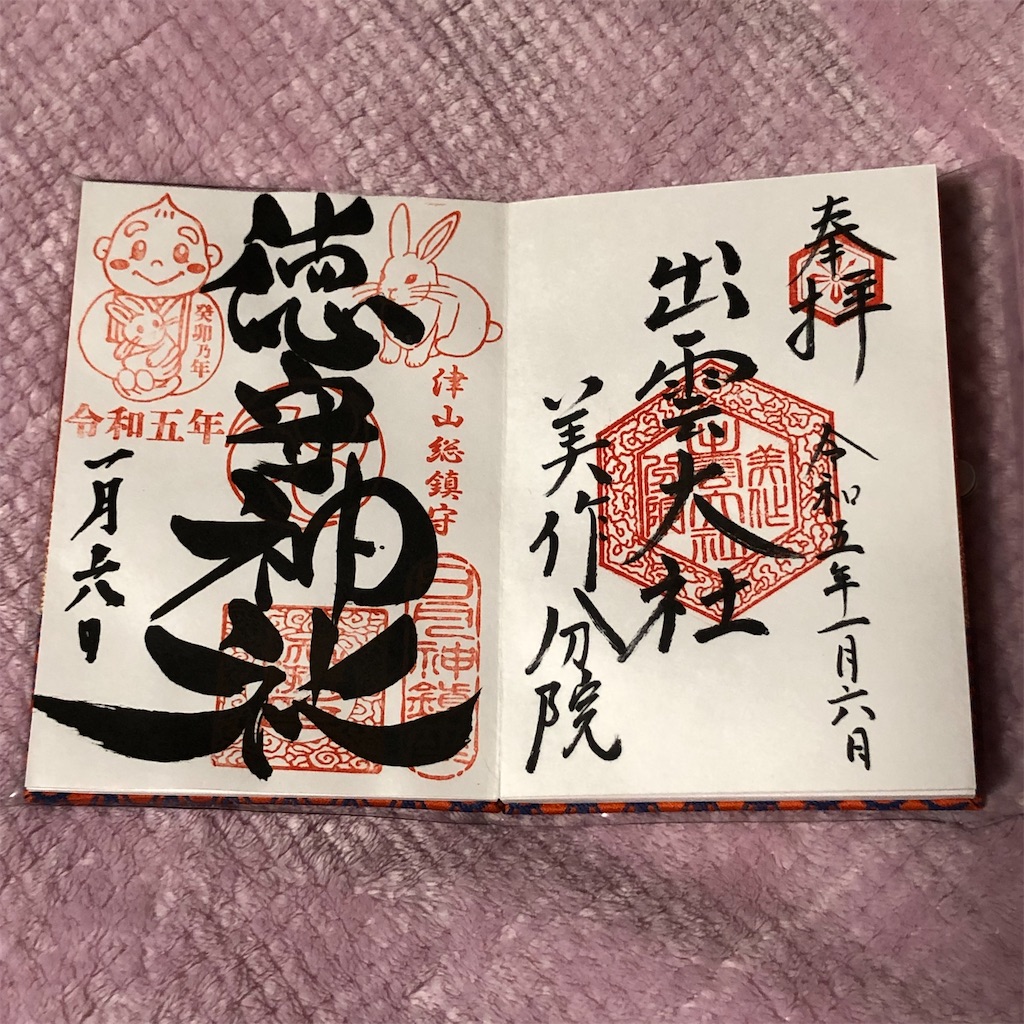 奉拝
出雲大社
美作分院
令和五年一月六日
津山総鎮守
徳守神社
癸卯乃年
令和五年
一月六日